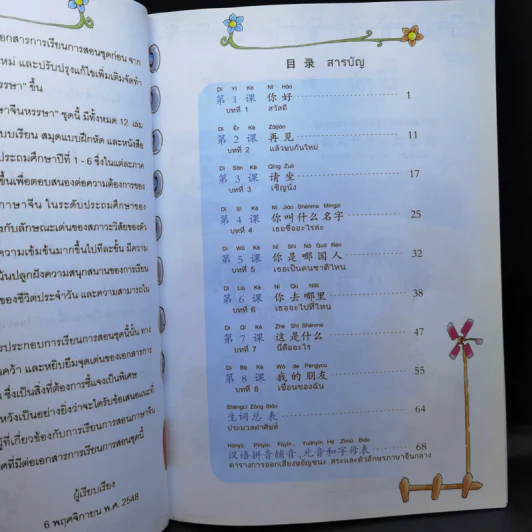 อกสารการเรียนการสอนชุดก่อน จาก
ใหม่ และปรับปรุงแก้ไขเพิ่มเติมจัดทำ
รรษา" ขึ้น
าจีนหรรษา" ชุดนี้ มีทั้งหมด 12 เล่ม
บบเรียน สมุดแบบฝึกหัด และหนังสือ
ประถมศึกษาปีที่ 1 - 6 ซึ่งในแต่ละภาค
ขึ้นเพื่อตอบสนองต่อความต้องการของ
ภาษาจีน ในระดับประถมศึกษาของ
งกับลักษณะเด่นของสภาวะวัยของตัว
ความเข้มข้นมากขึ้นไปทีละขั้น มีความ
นปลูกฝังความสนุกสนานของการเรียน
ของชีวิตประจำวัน และความสามารถใน
ประกอบการเรียนการสอนชุดนี้นั้น ทาง
คว้า และหยิบยืมจุดเด่นของเอกสารการ
ซึ่งเป็นสิ่งที่ต้องการชี้แจงเป็นพิเศษ
หวังเป็นอย่างยิ่งว่าจะได้รับข้อเสนอแนะที่
ผู้ที่เกี่ยวข้องกับการเรียนการสอนภาษาจีน
คที่มีต่อเอกสารการเรียนการสอนชุดนี้
ผู้เรียบเรียง
6 พฤศจิกายน พ.ศ. 2548
目 录 สารบัญ
Dì Yī Kè Nǐ Hǎo
第 1 课 你 好 1
บทที่ 1 สวัสดี
Dì Èr Kè Zàijiàn
第 2 课 再 见 11
บทที่ 2 แล้วพบกันใหม่
Dì Sān Kè Qǐng Zuò
第 3 课 请 坐 17
บทที่ 3 เชิญนั่ง
Dì Sì Kè Nǐ Jiào Shénme Míngzi
第 4 课 你 叫 什 么 名 字 25
บทที่ 4 เธอชื่ออะไรล่ะ
Dì Wǔ Kè Nǐ Shì Nǎ Guó Rén
第 5 课 你 是 哪 国 人 32
บทที่ 5 เธอเป็นคนชาติไหน
Dì Liù Kè Nǐ Qù Nǎlǐ
第 6 课 你 去 哪 里 38
บทที่ 6 เธอจะไปที่ไหน
Dì Qī Kè Zhè Shì Shénme
第 7 课 这 是 什 么 47
บทที่ 7 นี่คืออะไร
Dì Bā Kè Wǒ de Péngyou
第 8 课 我 的 朋 友 55
บทที่ 8 เพื่อนของฉัน
Shēngcí Zǒng Biǎo
生 词 总 表 64
ประมวลคำศัพท์
Hànyǔ Pīnyīn Fǔyīn、Yuányīn Hé Zìmǔ Biǎo
汉语拼音辅音、元音和字母表 68
ตารางการออกเสียงพยัญชนะ สระและตัวอักษรภาษาจีนกลาง